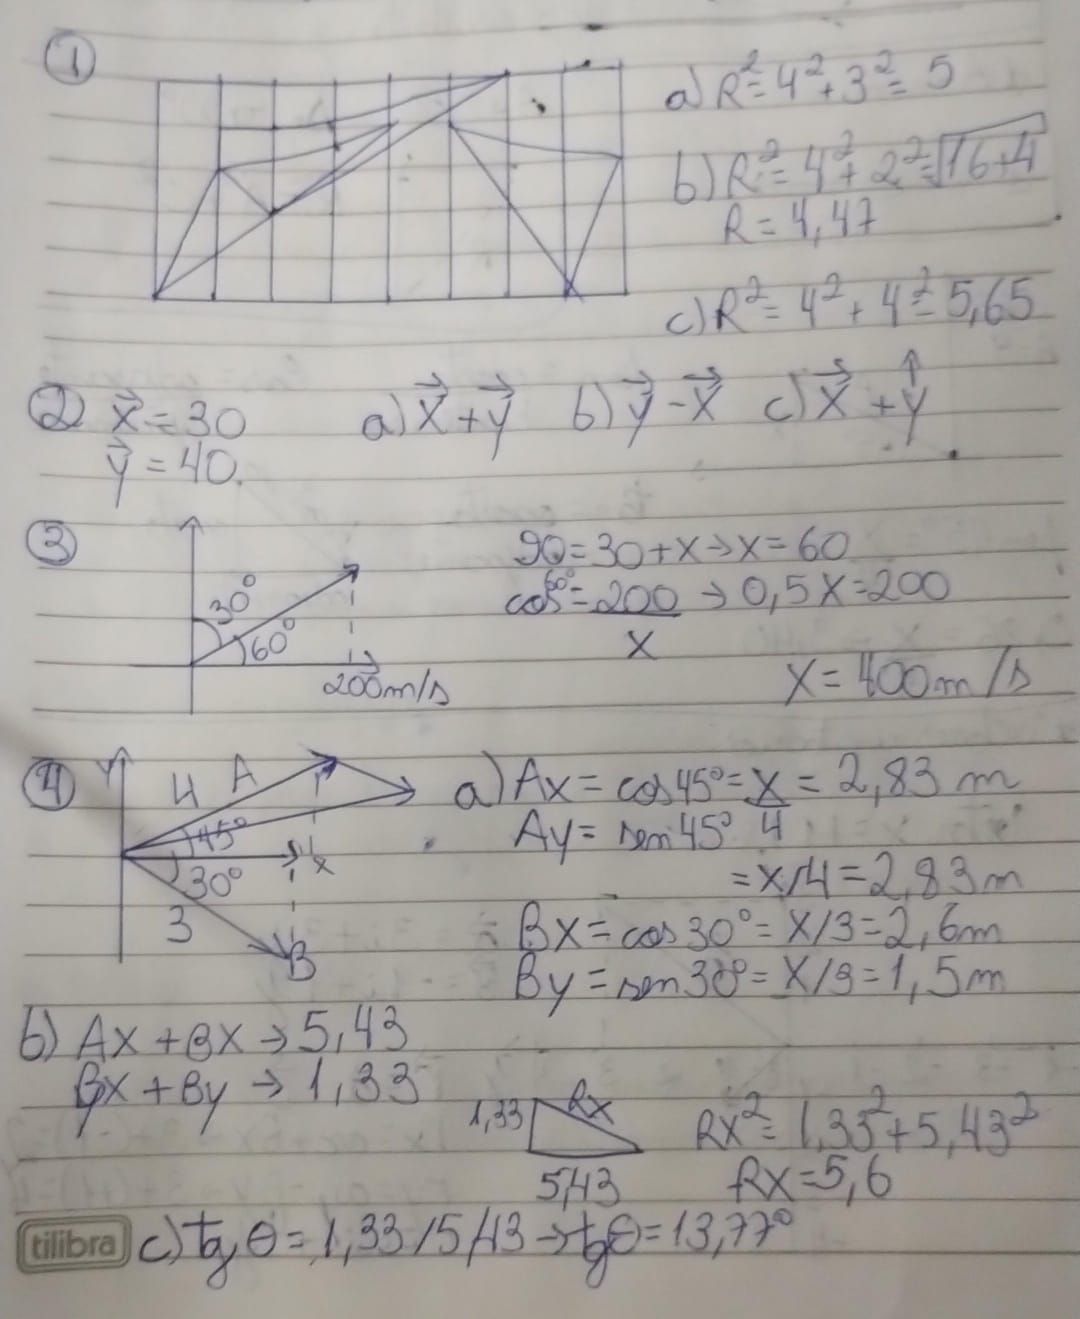 1
a) R² = 4² + 3² = 5
b) R² = 4² + 2² = √16+4
R = 4,47
c) R² = 4² + 4² = 5,65
2 x⃗ = 30 a) x⃗ + y⃗ b) y⃗ - x⃗ c) x⃗ + y⃗
y⃗ = 40.
3
30°
60°
200m/s
90 = 30 + x → x = 60
cos 60° = 200/x → 0,5x = 200
x = 400 m/s
4
Y
4 A
45°
x
30°
3
B
a) Ax = cos 45° = x/4 = 2,83 m
Ay = sen 45°
= x/4 = 2,83 m
Bx = cos 30° = x/3 = 2,6m
By = sen 30° = x/3 = 1,5m
b) Ax + Bx → 5,43
Bx + By → 1,33
1,33
Rx
5,43
Rx² = 1,33² + 5,43²
Rx = 5,6
tilibra c) tg θ = 1,33/5,43 → tg θ = 13,77°